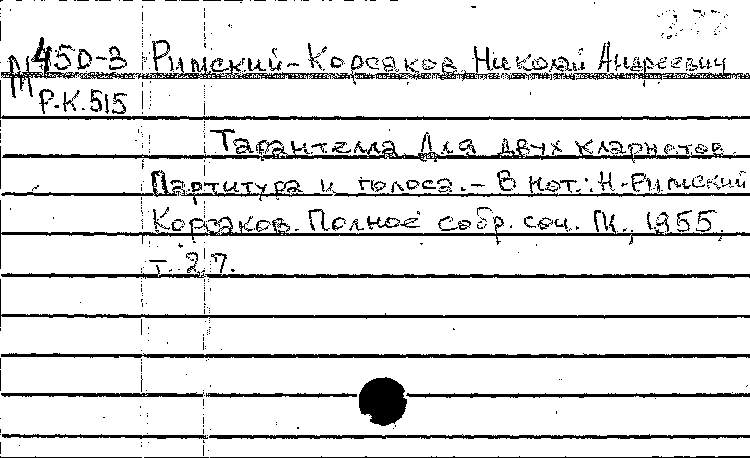 237
М 450-3 Римский-Корсаков, Николай Андреевич
Р.К.515
Тарантелла для двух кларнетов.
Партитура и голоса. - В нот.: Н. Римский
Корсаков. Полное собр. соч. М., 1955,
т. 27.